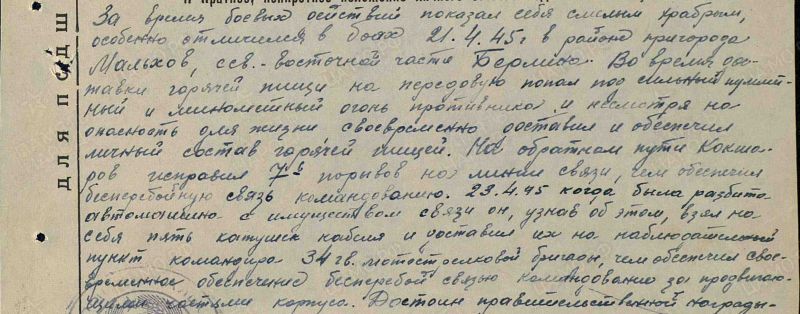 За время боевых действий показал себя смелым храбрым,
особенно отличился в боях 21.4.45г в районе пригорода
Мальхов, сев.-восточной части Берлина. Во время дос-
тавки горячей пищи на передовую попал под сильный пулемет-
ный и минометный огонь противника и несмотря на
опасность для жизни своевременно доставил и обеспечил
личный состав горячей пищей. На обратном пути Кокша-
ров исправил 7 порывов на линии связи, чем обеспечил
бесперебойную связь командованию. 23.4.45 когда была разбита
автомашина с имуществом связи он, узнав об этом, взял на
себя пять катушек кабеля и доставил их на наблюдательный
пункт командира 34 гв. мотострелковой бригады, чем обеспечил свое-
временное обеспечение бесперебой связью командование за продвигаю-
щими частями корпуса. Достоин правительственной награды-
ДЛЯ ПОДШ